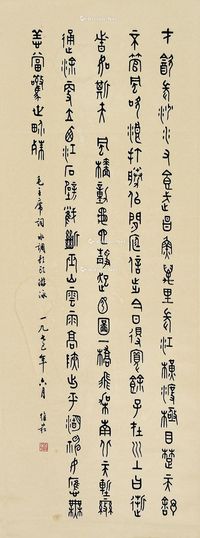 才飲長沙水又食武昌魚萬里長江橫渡極目楚天舒
不管風吹浪打勝似閒庭信步今日得寬餘子在川上曰逝
者如斯夫 風檣動龜蛇靜起宏圖一橋飛架南北天塹變
通途更立西江石壁截斷巫山雲雨高峽出平湖神女應無
恙當驚世界殊
毛主席詞水調歌頭游泳 一九七三年六月